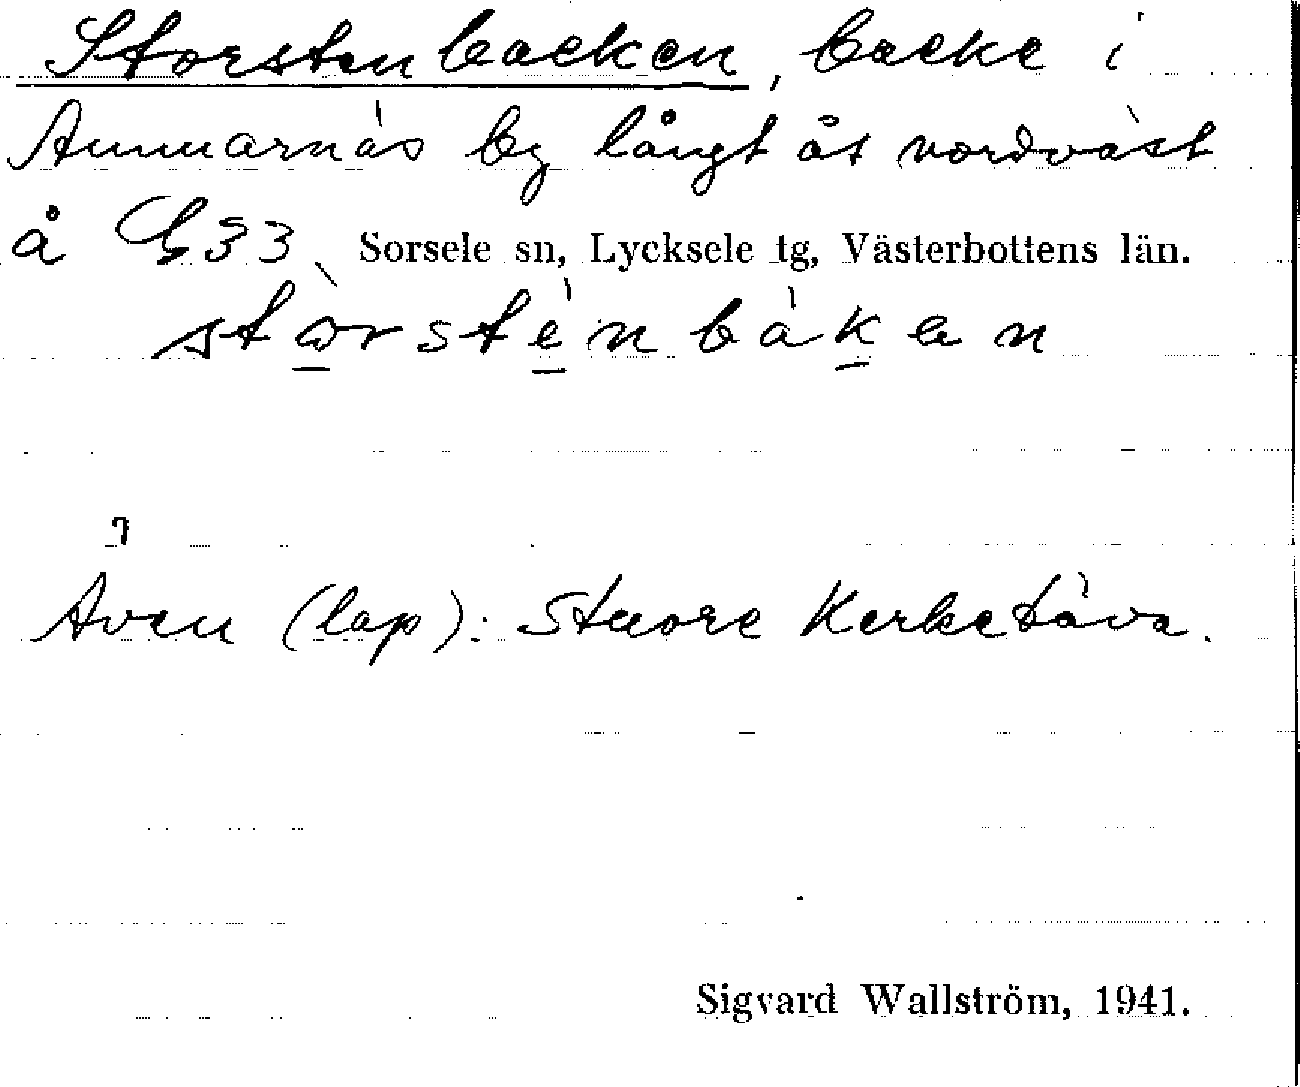 Storstenbacken, backe i
Ammarnäs by långt åt nordväst
å G33 Sorsele sn, Lycksele tg, Västerbottens län.
stɷrsténbàkan
Även (lap): Stuore Kerketàva.
Sigvard Wallström, 1941.